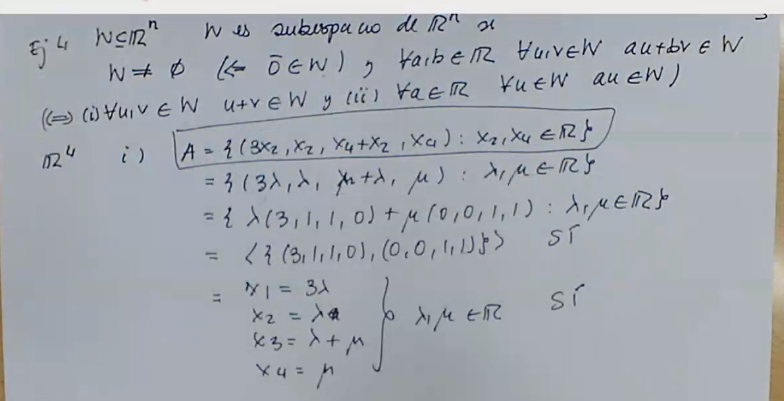 Ej 4 W⊆ℝⁿ W es subespacio de ℝⁿ si
W ≠ ∅ (← 0̄ ∈ W) y ∀a,b∈ℝ ∀u,v∈W au+bv ∈ W
((⇔) (i) ∀u,v ∈ W u+v ∈ W y (ii) ∀a∈ℝ ∀u∈W au∈W)
ℝ⁴ i) A = {(3x₂, x₂, x₄+x₂, x₄) : x₂, x₄ ∈ ℝ}
= {(3λ, λ, μ+λ, μ) : λ,μ∈ℝ}
= {λ(3,1,1,0) + μ(0,0,1,1) : λ,μ∈ℝ}
= ⟨{(3,1,1,0), (0,0,1,1)}⟩ SÍ
= x1 = 3λ
x2 = λ
x3 = λ + μ } λ,μ ∈ ℝ SÍ
x4 = μ